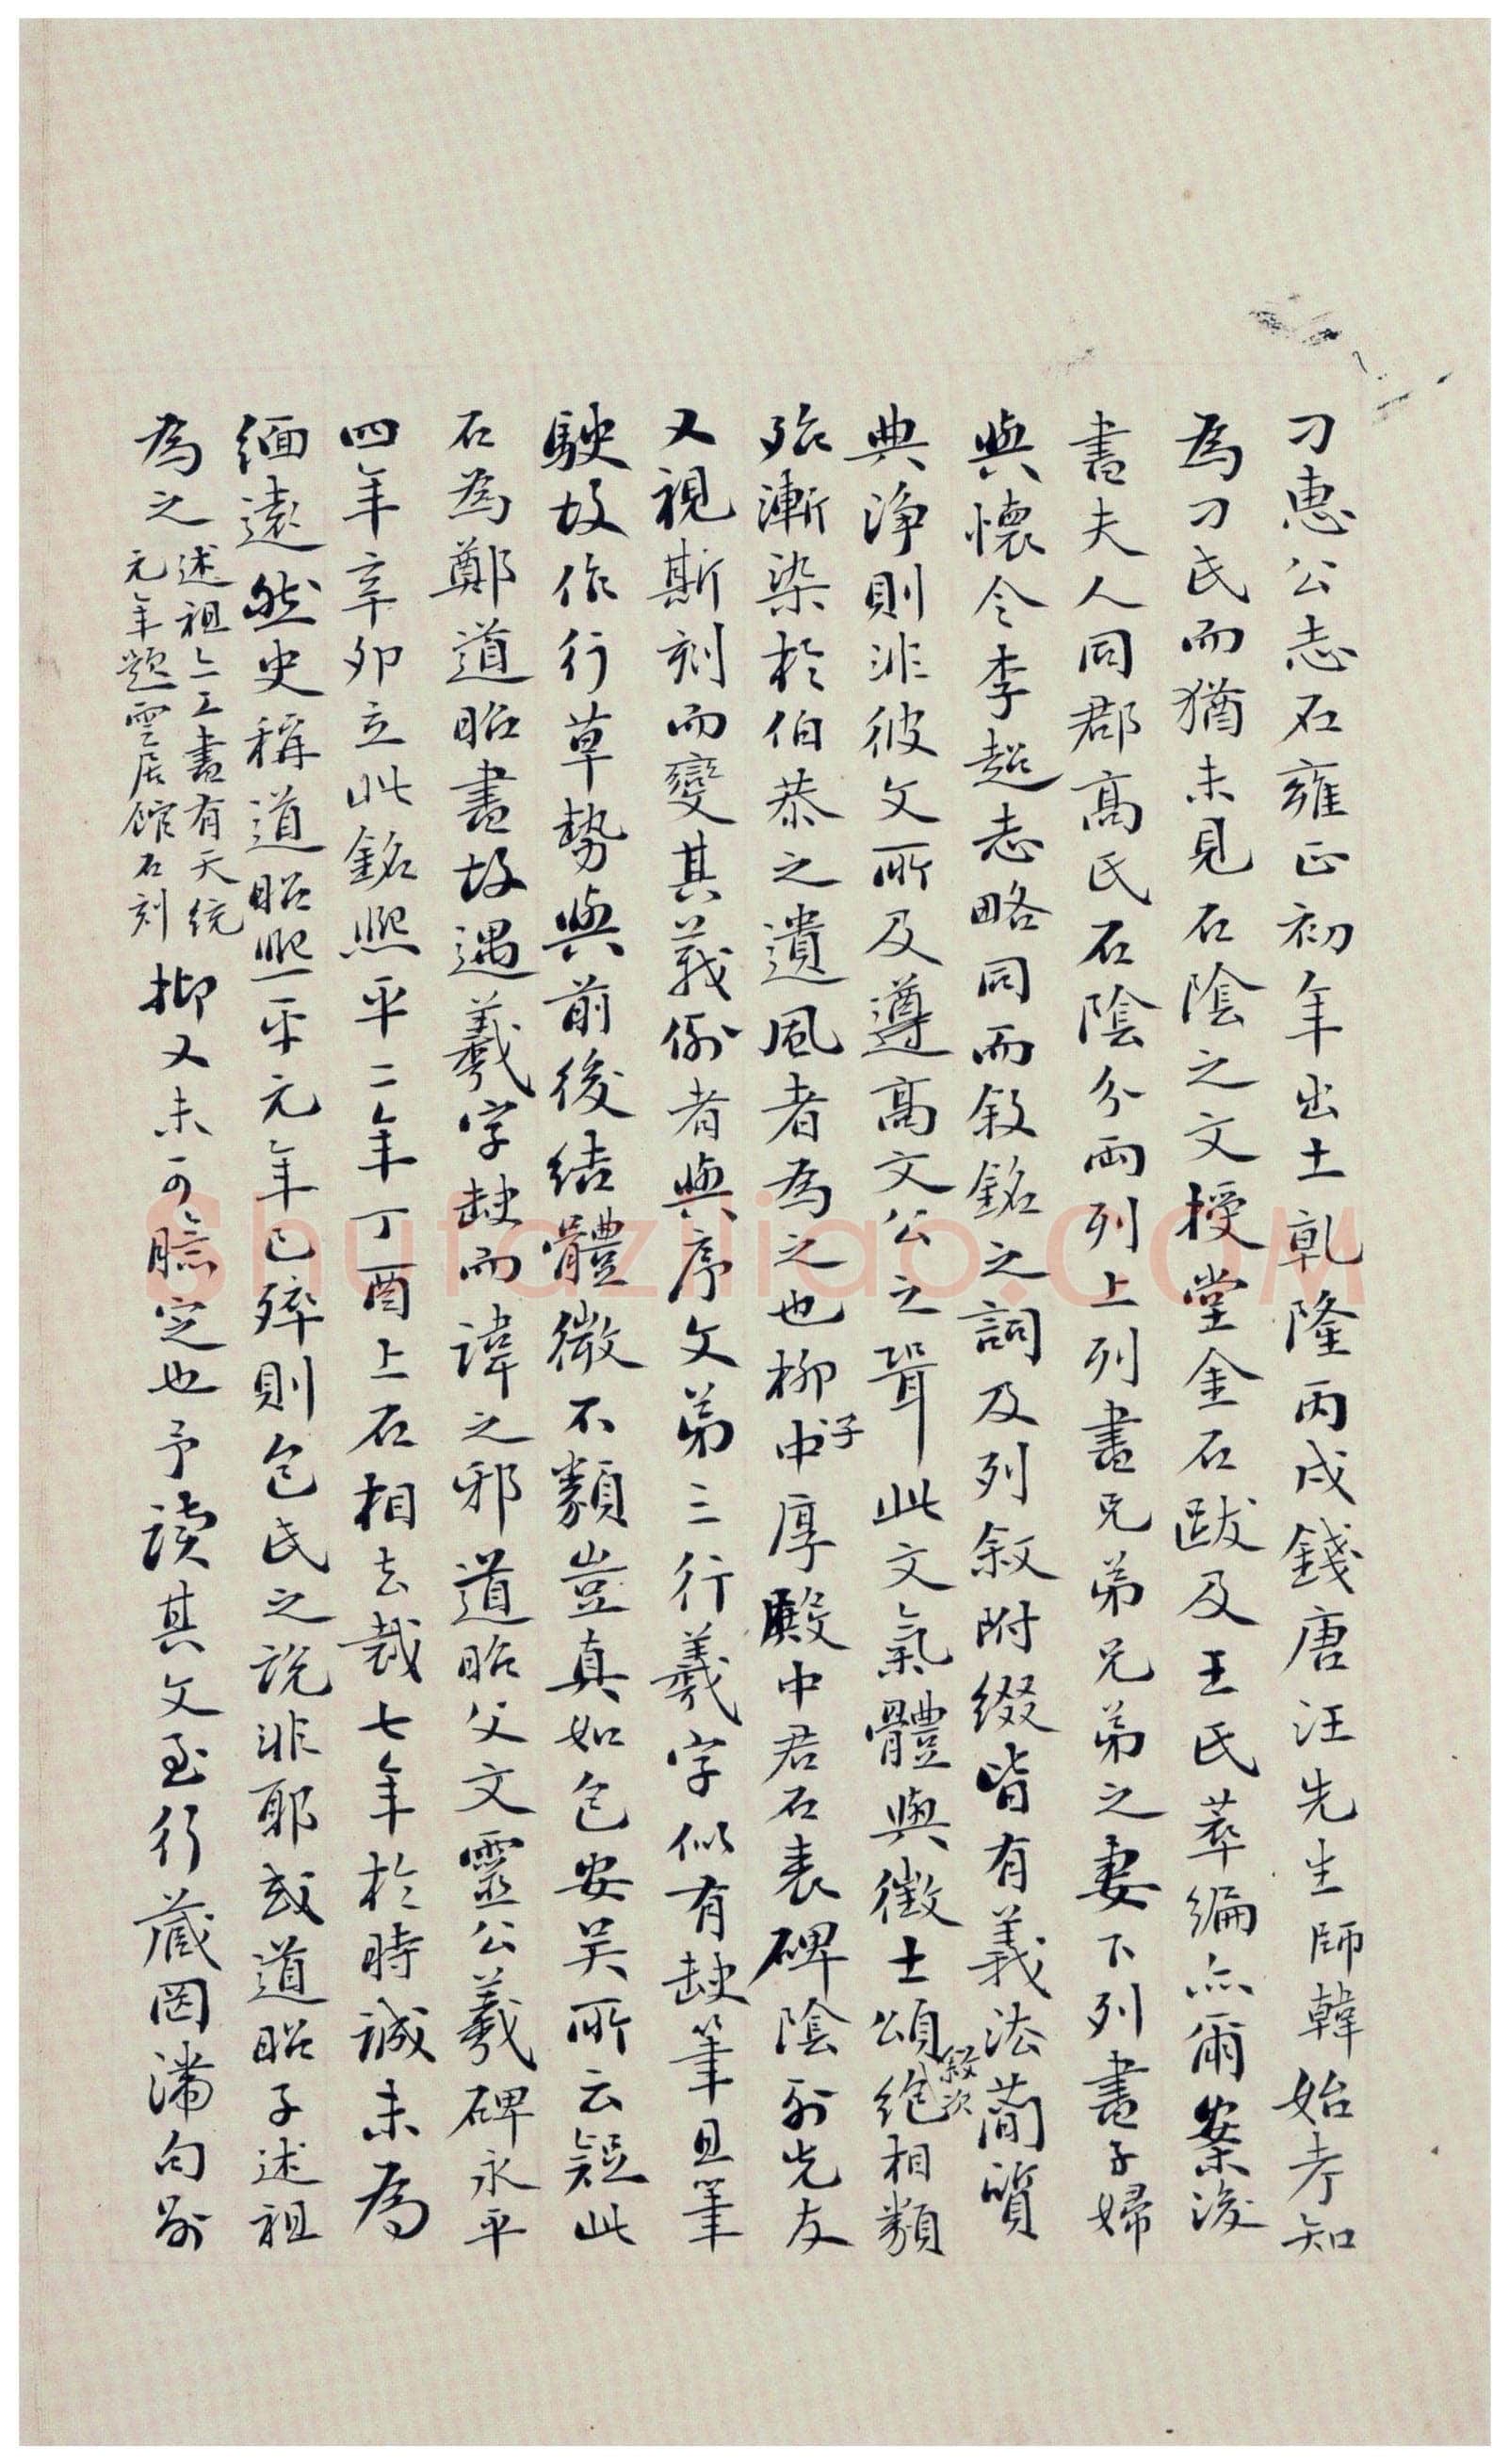 刁惠公志石雍正初年出土乹隆丙戌錢唐汪先生師韓始考知
為刁氏而猶未見石陰之文授堂金石跋及王氏萃編亦爾案後
書夫人同郡高氏石陰分兩列上列書兄弟兄弟之妻下列書子婦
與懷令李超志略同而叙銘之詞及列叙附綴皆有義法蕳質
典淨則非彼文所及遵高文公之聟此文氣體與徵士頌叙次絶相類
殆漸染於伯恭之遺風者為之也柳子中厚殿中君石表碑陰列先友
又視斯刻而變其義例者與序文弟三行羲字似有缺筆且筆
駛故作行草勢與前後結體微不類豈真如包安吴所云疑此
石為鄭道昭書故遇羲字缺而諱之邪道昭父文靈公羲碑永平
四年辛卯立此銘熙平二年丁酉上石相去裁七年於時誠未為
緬遠然史稱道昭熙平元年已殌則包氏之説非耶或道昭子述祖
為之述祖亦工書有天統元年題雲居館石刻抑又未可臆定也予讀其文至行藏罔滯句别